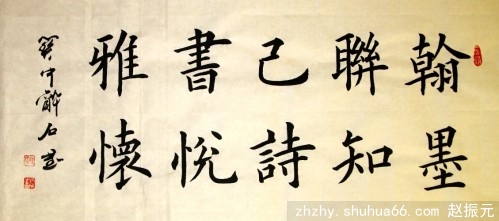 翰墨
聯知
己詩
書悅
雅懷
zhzhy.shuhua66.com 赵振元